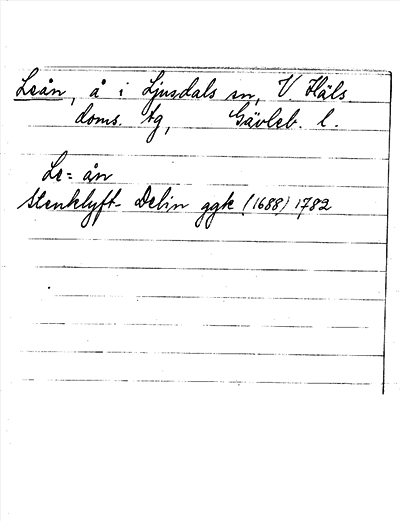 Leån, å i Ljusdals sn, V Häls.
doms. tg, Gävleb. l.
Le= ån
Stenklyft- Delin ggk (1688) 1782